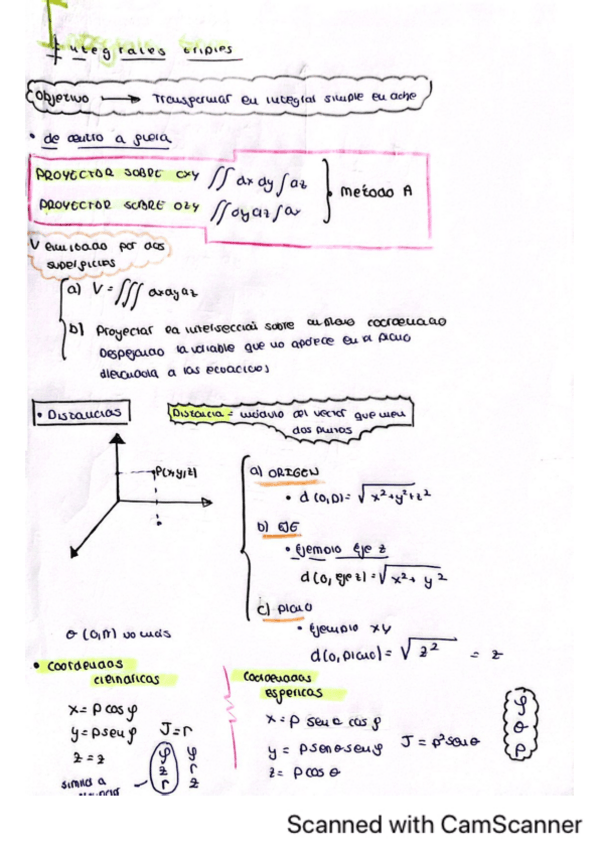 Integrales triples
Objetivo → Transformar en integral simple en doble
• de dentro a fuera
PROYECTOR SOBRE OXY ∬ dx dy ∫ dz
PROYECTOR SOBRE OZY ∬ dy dz ∫ dx
Metodo A
V encerrado por dos
superficies
a) V = ∭ dx dy dz
b) Proyectar la intersección sobre un plano coordenado
Despejando la variable que no aparece en el plano
a las ecuaciones
• Distancias
Distancia = módulo del vector que une
dos puntos
P(x,y,z)
a) ORIGEN
• d (O,D) = √x²+y²+z²
b) EJE
• Ejemplo Eje z
d (O, eje z) = √x² + y²
c) Plano
• Ejemplo xy
d(O, plano) = √z² = z
• Coordenadas
cilindricas
x = ρ cos φ
y = ρ sen φ J = r
z = z
similar a
φ
z
r
φ
r
z
Coordenadas
esfericas
x = ρ sen θ cos φ
y = ρ sen θ sen φ J = ρ² sen θ
z = ρ cos θ
φ
θ
ρ
Scanned with CamScanner